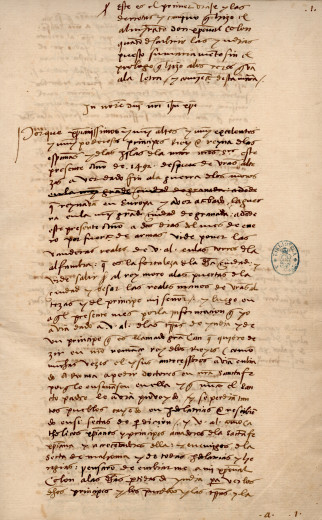 este es el primer viaje y las
derrotas y camino q hizo el
almirante don xpoual colon
quando descubrio las yndias
puesto sumariamente sin el
prologo q hizo alos reyes q va
ala letra y comiença desta manera
.1.
In noie dni nri ihu xpi
Porque xpianissimos y muy altos y muy excelentes
y muy poderosos principes Rey e Reyna delas
españas y delas yslas dela mar
este presente año de 1492 despues de vras altezas
aver dado fin ala guerra delos moros
q reynavan en europa y aver acabado la guerra
en la muy grade ciudad de granada adonde
este presente año a dos dias del mes de enero
por fuerça de armas vide poner las
vanderas reales de v. al. en las torres dela
alfambra q es la fortaleza dela dha ciudad y
vide salir al rey moro alas puertas dela
ciudad y besar las reales manos de vras al
tezas y del principe mi señor y luego en
aql presente mes por la informacion q yo
avia dado a v. al. delas trras de yndia y de
vn principe q es llamado gra can q quiere de
zir en nro romançe rey delos reyes como
muchas vezes el y sus anteçessores avia enbia
do a roma a pedir doctores en nra sancta fe
porq le enseñasen en ella y q nunca el san
cto padre le avia proveydo y se perdian
tantos pueblos cayendo en ydolatrias e resçibie
do en si sectas de perdiçion y v. al. como ca
tholicos xpianos y principes amadores dela sancta fe
xpiana y acreçentadores della y enemigos dela
secta de mahoma y de todas ydolatrias y he
regias pensaro de enbiarme a mi xpoual
Colon alas dhas partidas de yndia pa ver los
dhos principes y los pueblos y las trras y la
.a. .1.